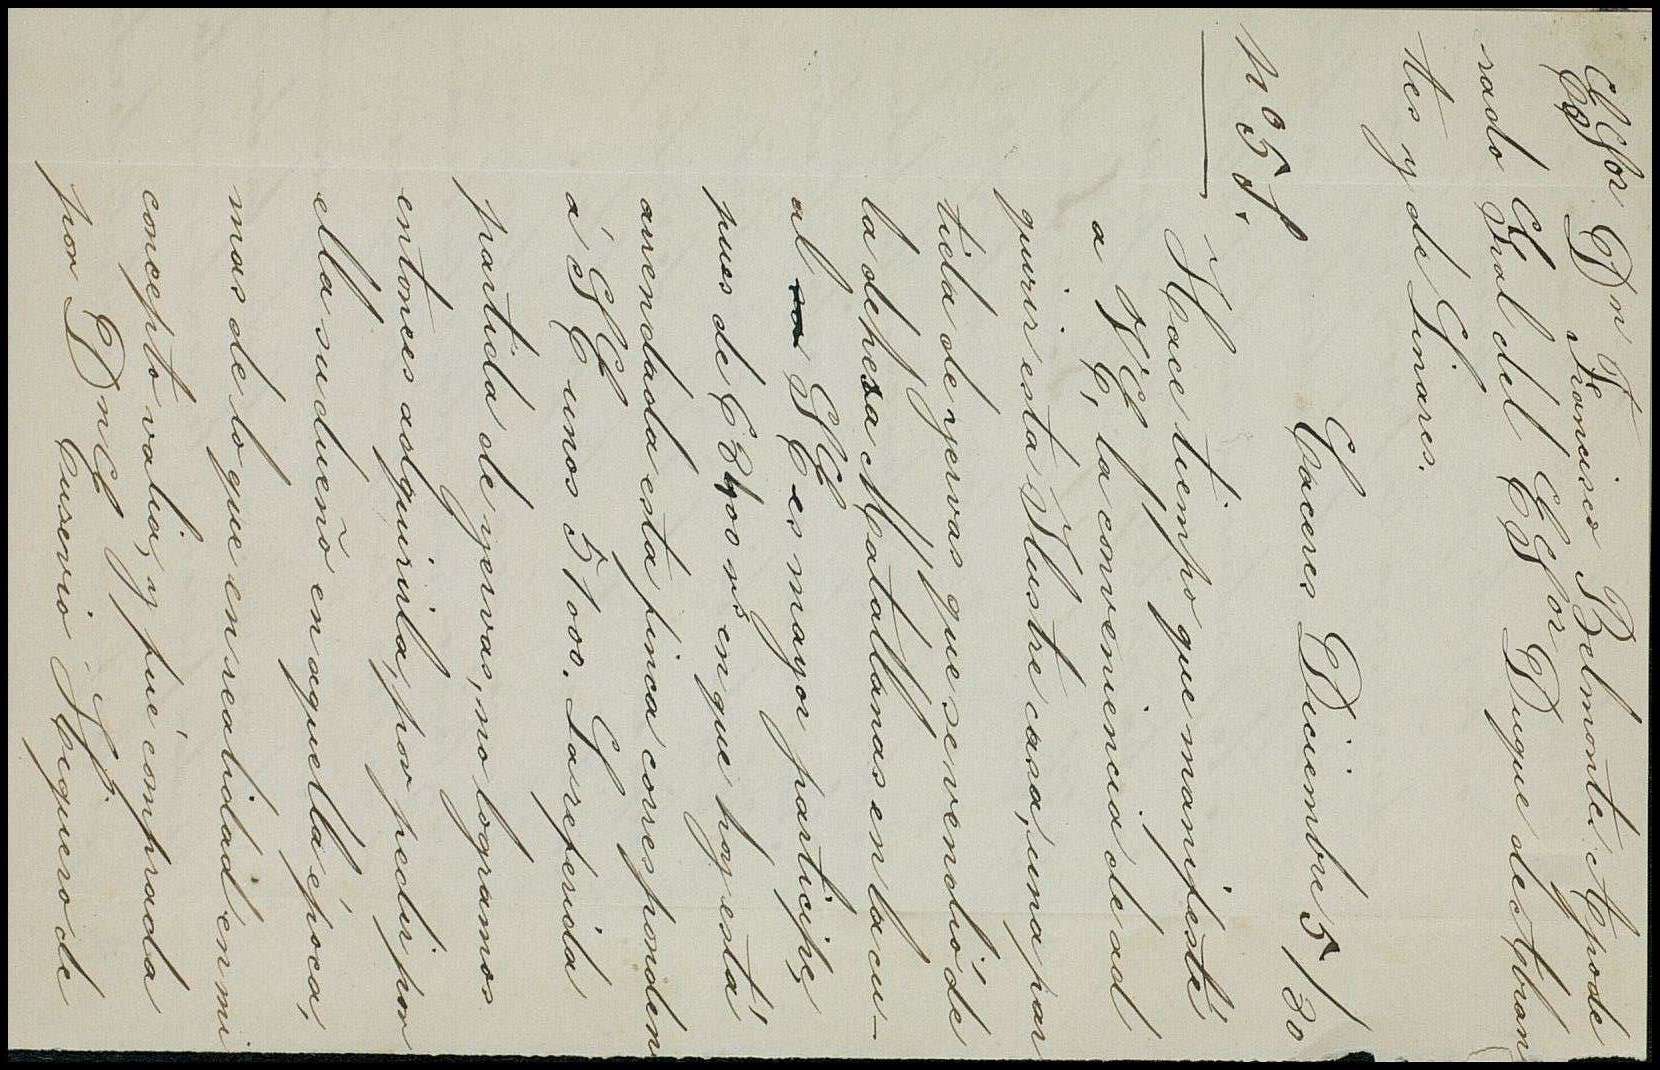 Sor Dn Francisco Belmonte. Apode
rado Gral del ESor Duque de Abran
tes y de Linares.
Caceres Diciembre 5/80
nº 57.
Hace tiempo que manifesté
a VE, la conveniencia de ad
quirir esta Ilustre casa, una par
tida de yervas que se vendió de
la dehesa Matallanas en la cu-
al SE es mayor participe,
pues de 6 3400 rs en que hoy está
arrendada esta finca corresponden
á SE unos 5 1000. La referida
partida de yervas, no logramos
entonces adquirirla, por pedir por
ella su dueño en aquella época,
mas de lo que en realidad en mi
concepto valia, y fué comprada
por Dn Euservio Higuero de